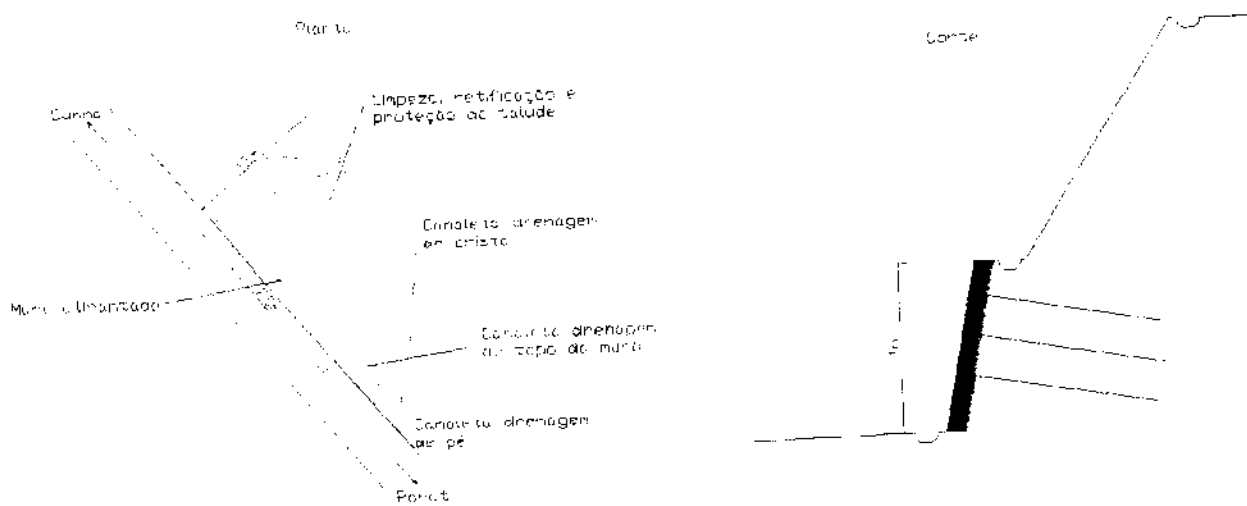 Planta
Corte
Cunha
Limpeza, retificação e
proteção do talude
Canaleta drenagem
de crista
Muro
Canaleta drenagem
do topo do muro
Canaleta drenagem
de pé